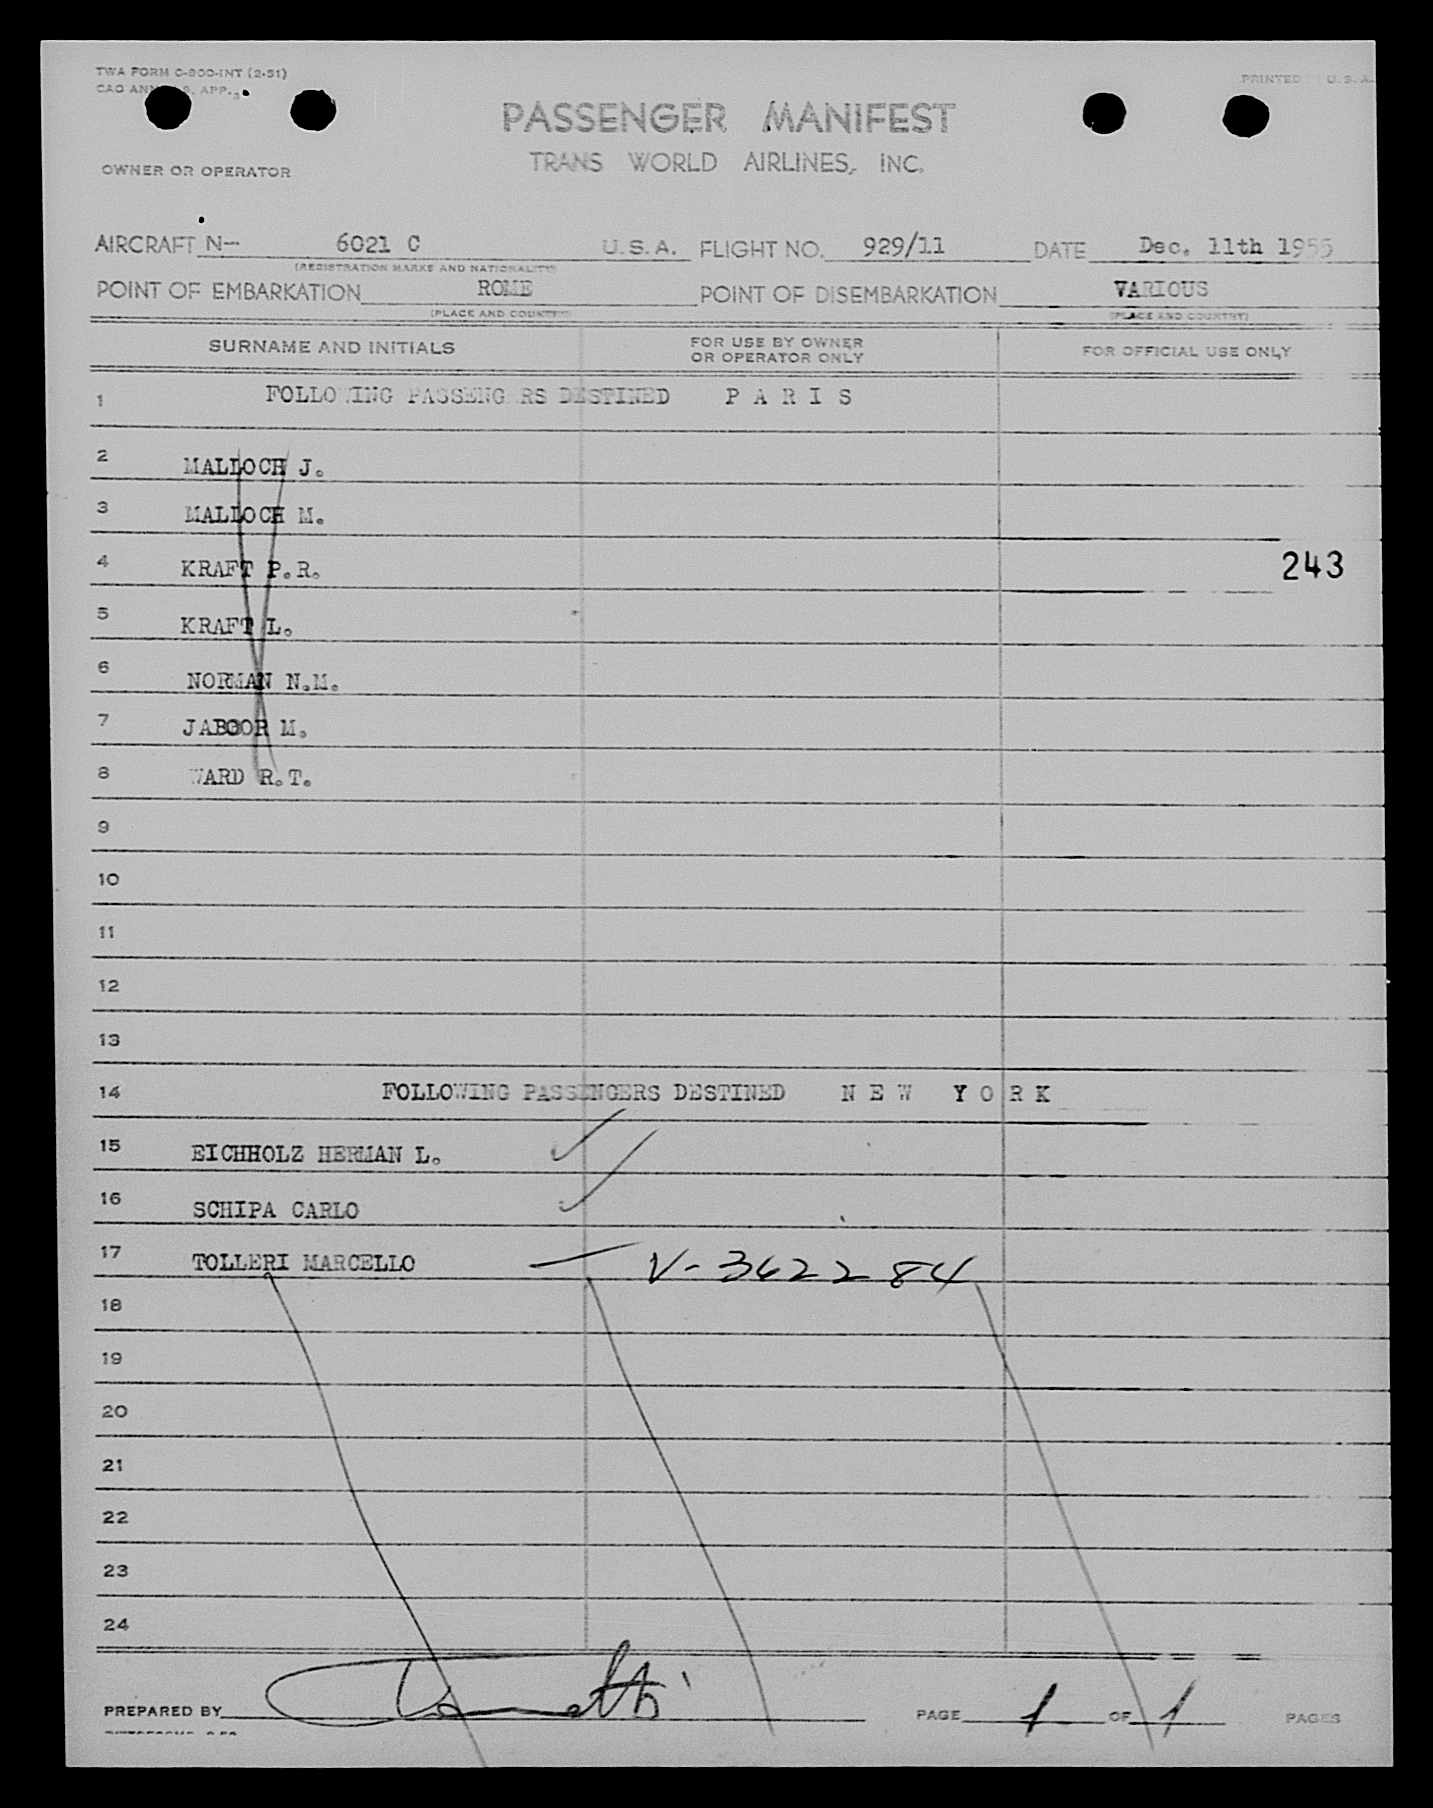 TWA FORM C-800-INT (2-51)
PRINTED U.S.A.
PASSENGER MANIFEST
TRANS WORLD AIRLINES, INC.
OWNER OR OPERATOR
AIRCRAFT N- 6021 C U.S.A. FLIGHT NO. 929/11 DATE Dec. 11th 1955
(REGISTRATION MARKS AND NATIONALITY)
POINT OF EMBARKATION ROME POINT OF DISEMBARKATION VARIOUS
(PLACE AND COUNTRY) (PLACE AND COUNTRY)
SURNAME AND INITIALS FOR USE BY OWNER OR OPERATOR ONLY FOR OFFICIAL USE ONLY
1 FOLLOWING PASSENGERS DESTINED P A R I S
2 MALLOCH J.
3 MALLOCH M.
4 KRAFT P.R. 243
5 KRAFT L.
6 NORMAN N.M.
7 M.
8 WARD R.T.
9
10
11
12
13
14 FOLLOWING PASSENGERS DESTINED N E W Y O R K
15 EICHHOLZ HERMAN L.
16 SCHIPA CARLO
17 TOLLERI MARCELLO V-362284
18
19
20
21
22
23
24
PREPARED BY PAGE 1 OF 1 PAGES